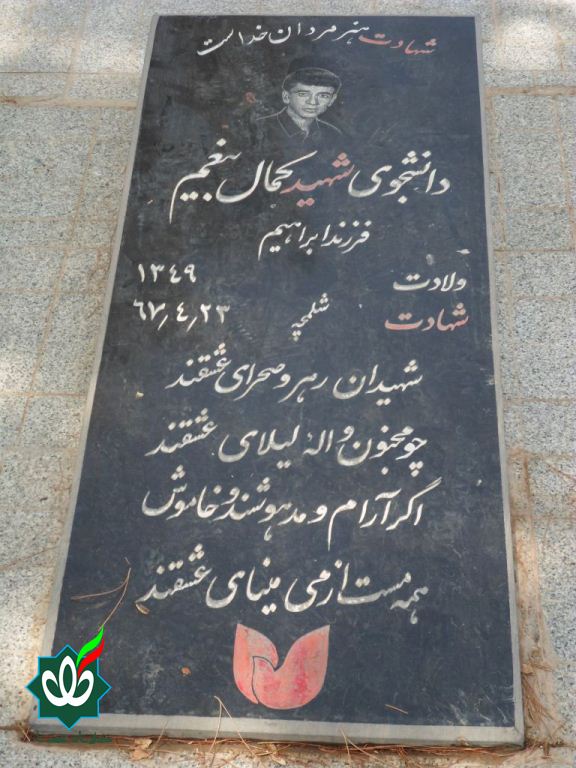 شهادت هنر مردان خداست
دانشجوی شهید کمال نغمیم
فرزند ابراهیم
ولادت ۱۳۴۹
شهادت شلمچه ۶۷٫۴٫۲۳
شهیدان رهرو صحرای عشقند
چو مجنون واله لیلای عشقند
اگر آرام و مدهوشند و خاموش
همه مست از می مینای عشقند